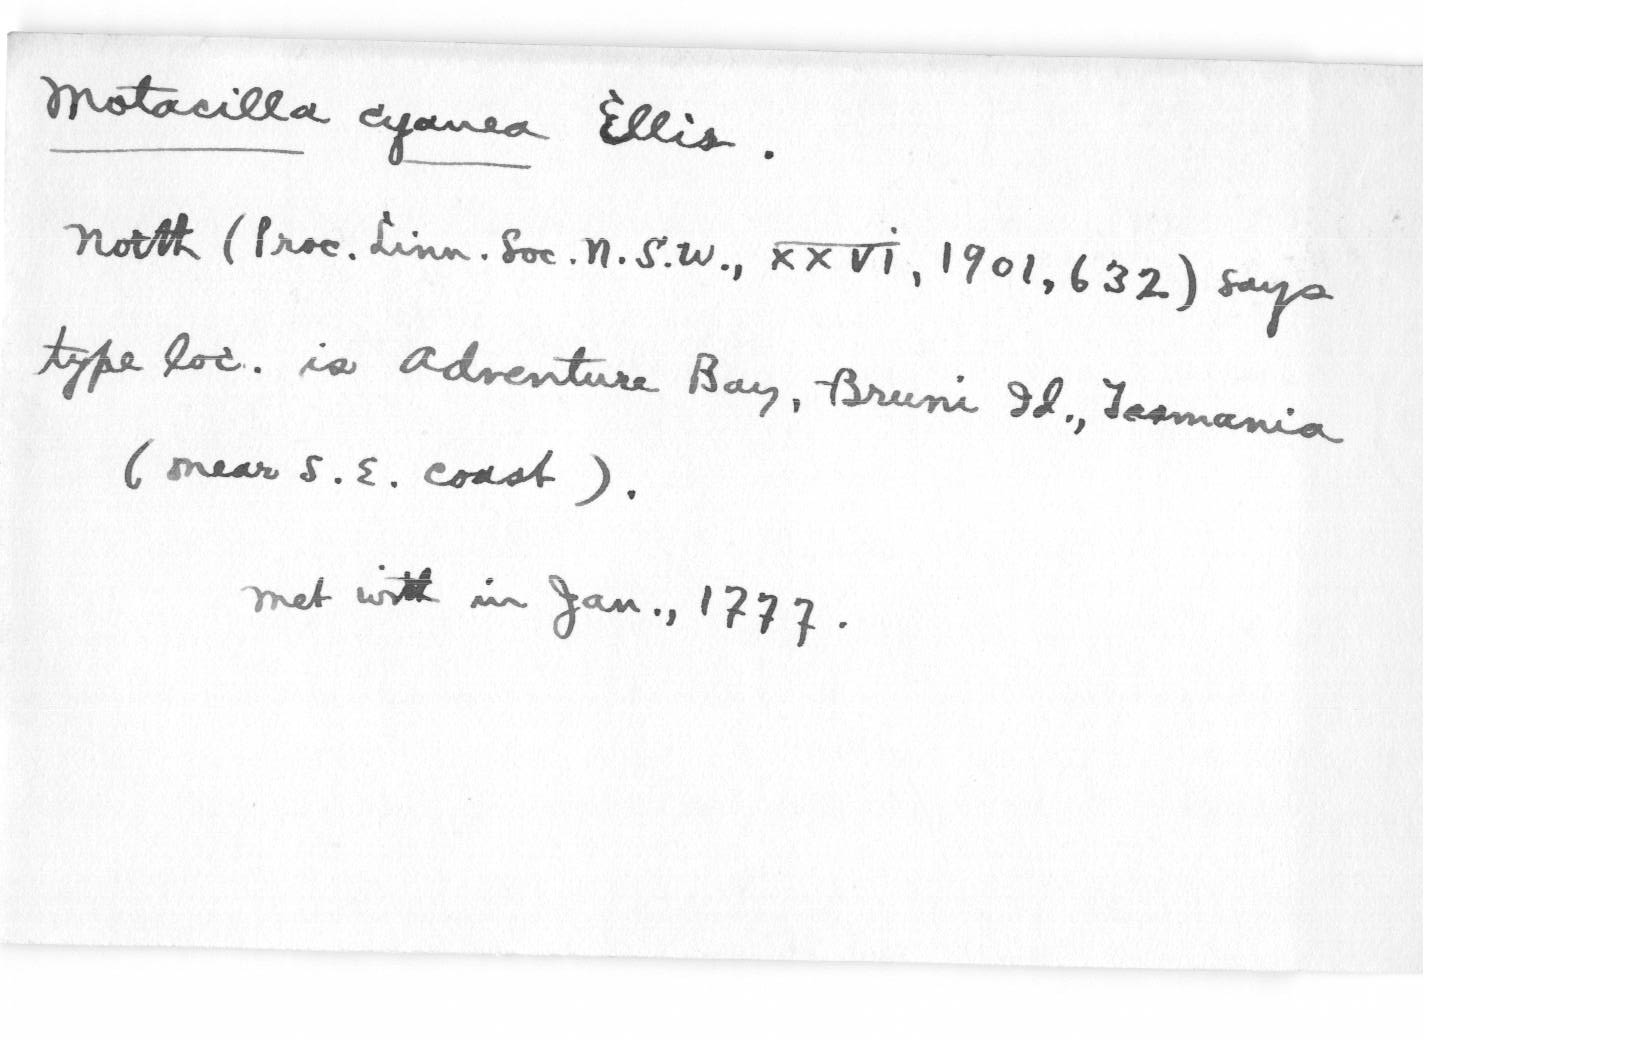 Motacilla cyanea Ellis.
North (Proc. Linn. Soc. N.S.W., XXVI, 1901, 632) says
type loc. is Adventure Bay, Bruni Id., Tasmania
(near S.E. coast).
Met with in Jan., 1777.